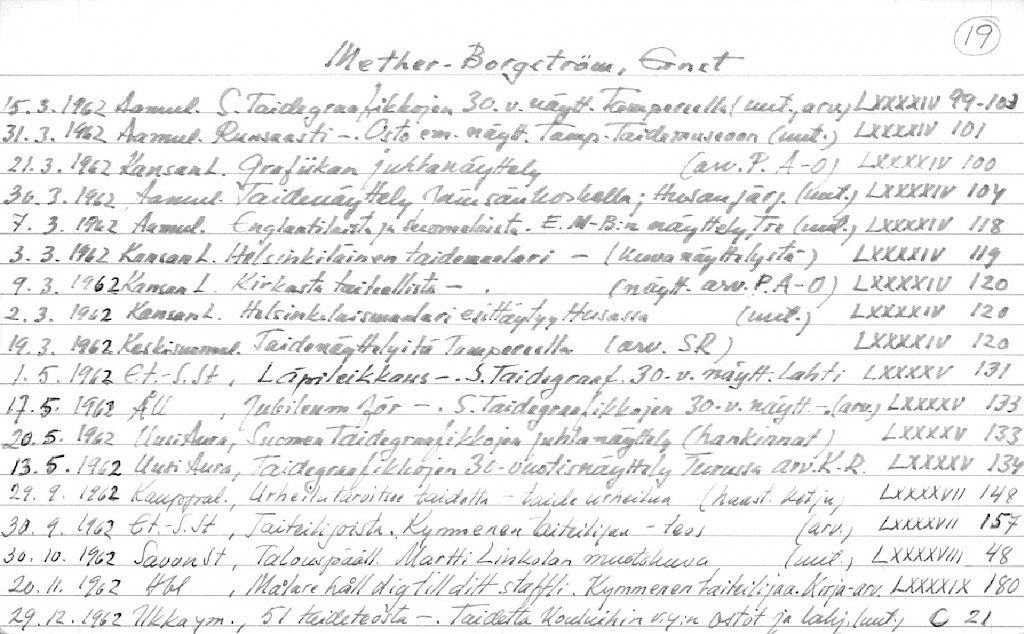 19
Mether-Borgström, Ernst
15.3.1962 Aamul. S. Taidegraafikkojen 30.v. näytt. Tampereella (uut., arv.) LXXXXIV 99-103
31.3.1962 Aamul. Runsaasti -. Osto em. näytt. Tamp. Taidemuseoon (uut.) LXXXXIV 101
21.3.1962 Kansan L. Grafiikan juhlanäyttely (arv. P. A-O) LXXXXIV 100
30.3.1962 Aamul. Taidenäyttely Jämsänkoskella; Husan järj. (uut.) LXXXXIV 104
7.3.1962 Aamul. Englantilaista ja suomalaista. E. M-B:n näyttely, Tre (uut.) LXXXXIV 118
3.3.1962 Kansan L. Helsinkiläinen taidemaalari - (kuva näyttelystä) LXXXXIV 119
9.3.1962 Kansan L. Kirkasta taiteellista -. (näytt. arv. P. A-O) LXXXXIV 120
2.3.1962 Kansan L. Helsinkiläismaalari esittäytyy Husassa (uut.) LXXXXIV 120
19.3.1962 Keskisuomal. Taidenäyttelyitä Tampereella (arv. SR) LXXXXIV 120
1.5.1962 Et.-S.St, Läpileikkaus -. S. Taidegraaf. 30-v. näytt. Lahti LXXXXV 131
17.5.1962 Åll, Jubileum för -. S. Taidegraafikkojen 30-v. näytt. -. (arv.) LXXXXV 133
20.5.1962 Uusi Aura, Suomen Taidegraafikkojen juhlanäyttely (hankinnat) LXXXXV 133
13.5.1962 Uusi Aura, Taidegraafikkojen 30-vuotisnäyttely Turussa arv. K-R. LXXXXV 134
29.9.1962 Kauppal., Urheilu tarvitsee taidetta - taide urheilua (haast. ketju) LXXXXVII 148
30.9.1962 Et.-S.St, Taiteilijoista. Kymmenen taiteilijaa - teos (arv.) LXXXXVII 157
30.10.1962 Savon St, Talouspääll. Martti Linkolan muotokuva (uut.) LXXXXVIII 48
20.11.1962 Hbl, Målare håll dig till ditt staffli. Kymmenen taiteilijaa. Kirja-arv. LXXXXIX 180
29.12.1962 Ukka ym., 51 taideteosta -. Taidetta Kouluihin r.y:n ostot ja lahj. (uut.) C 21